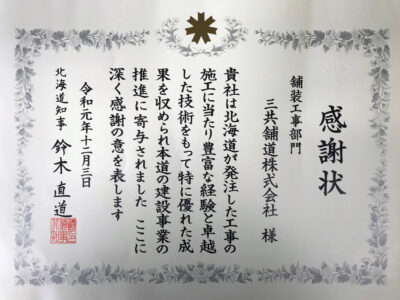 感謝状
舗装工事部門
三共舗道株式会社 様
貴社は北海道が発注した工事の
施工に当たり豊富な経験と卓越
した技術をもって特に優れた成
果を収められ本道の建設事業の
推進に寄与されました ここに
深く感謝の意を表します
令和元年十二月三日
北海道知事 鈴木直道